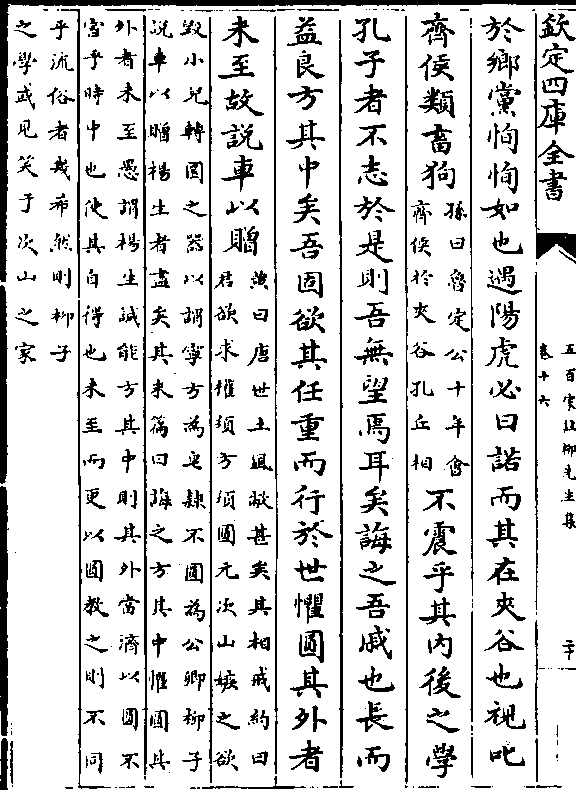 欽定四庫全書
五百家註柳先生集
卷十六
二十
於鄉黨恂恂如也遇陽虎必曰諾而其在夾谷也視叱
齊侯類畜狗
孫曰魯定公十年會
齊侯於夾谷孔丘相
不震乎其內後之學
孔子者不志於是則吾無望焉耳矣誨之吾戚也長而
益良方其中矣吾固欲其任重而行於世懼圓其外者
未至故說車以贈
黃曰唐世士風敝甚矣其相戒約曰
君欲求權須方須圓元次山嫉之欲
毀小兒轉圜之器以謂寧方為皂隸不圓為公卿柳子
說車以贈楊生者盡矣其末篇曰誨之方其中懼圓其
外者未至愚謂楊生誠能方其中則其外當濟以圓不
害乎時中也使其自得也未至而更以圓教之則不同
乎流俗者幾希然則柳子
之學或見笑于次山之家